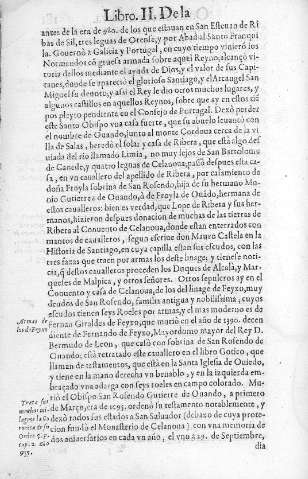 Libro. II. De la
antes de la era de 980. de los que estauan en San Esteuan de Ri
bas de Sil, tres leguas de Orense, y por Abad al Santo Franqui
la. Gouernò a Galicia y Portugal, en cuyo tiempo vinierō los
Normandos cō gruesa armada sobre aquel Reyno, alcançò vi
toria dellos mediante el ayuda de Dios, y el valor de sus Capi
tanes, donde se apareciò el glorioso Santiago, y el Arcangel San
Miguel su deuoto, y assi el Rey le dio otros muchos lugares, y
algunos castillos en aquellos Reynos, sobre que ay en estos tiē
pos pleyto pendiente en el Consejo de Portugal. Dexò poder
este Santo Obispo vna casa fuerte, que su abuelo leuantò con
el nombre de Ouando, junto al monte Cordoua cerca de la vi
lla de Salas, heredò el solar y casa de Ribera, que està algo des
uiada del rio llamado Limia, no muy lejos de San Bartolome
de Ganede, y quatro leguas de Celanoua; passò despues esta ca
sa, en vn cauallero del apellido de Ribera, por casamiento de
doña Froyla sobrina de San Rosendo, hija de su hermano Mo-
nio Gutierrez de Ouando, ò de Froyla de Ouãdo, hermana de
estos caualleros: bien es verdad, que Lope de Ribera y sus her-
manos, hizieron despues donacion de muchas de las tierras de
Ribera al Conuento de Celanoua, donde estan enterrados con
mantos de caualleros, segun escriue don Mauro Castela en la
Historia de Santiago, en cuya capilla estan sus escudos, con las
tres faxas que traen por armas los deste linage; y tiene se noti-
cia, q̃ destos caualleros proceden los Duques de Alcala, y Mar-
queses de Malpica, y otros señores. Otros sepulcros ay en el
Conuento y casa de Celanoua, de los del linage de Feyxo, muy
deudos de San Rosendo, familia antigua y nobilissima, cuyos
escudos tienen seys Roeles por armas, y el mas moderno es de
Fernan Giraldes de Feyxo, que muriò en el año de 1390. decen
diente de Fernando de Feyxo, Mayordomo mayor del Rey D.
Bermudo de Leon, que casò con sobrina de San Rosendo de
Ouando; està retratado este cauallero en el libro Gotico, que
llaman de testamentos, que està en la Santa Iglesia de Ouiedo,
y tiene en la mano derecha vn benablo, y en la izquierda em-
braçado vna adarga con seys roeles en campo colorado. Mu-
riò el Obispo San Rosendo Gutierre de Ouando, a primero
de Março, era de 1015. ordenò su testamento nobilemente, y
dexò todos sus estados a San Saluador (debaxo de cuya proto-
cion fundò el Monasterio de Celanoua) con vna memoria de
dos aniuersarios en cada vn año, el vno a 29. de Setiembre,
dia
Armas de
los de Feyxo